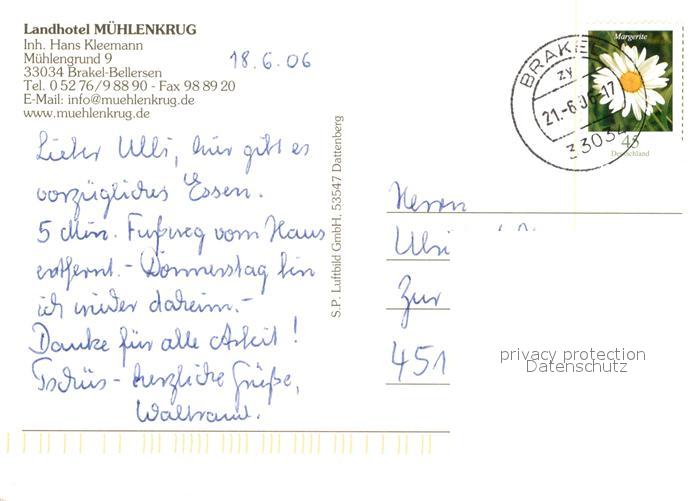 Landhotel MÜHLENKRUG
Inh. Hans Kleemann
Mühlengrund 9
33034 Brakel-Bellersen
Tel. 0 52 76/9 88 90 - Fax 98 89 20
E-Mail: info@muehlenkrug.de
www.muehlenkrug.de
18.6.06
Lieber Ulli, hier gibt es
vorzügliches Essen.
5 Min. Fußweg vom Haus
entfernt.- Donnerstag bin
ich wieder daheim.-
Danke für alle Arbeit!
Tschüs - herzliche Grüße,
Waltraud.
S.P. Luftbild GmbH, 53547 Dattenberg
Margerite
45
Deutschland
BRAKEL
zy
21.-6.06-17
33034
Herrn
Ulli
Zur
451
privacy protection
Datenschutz